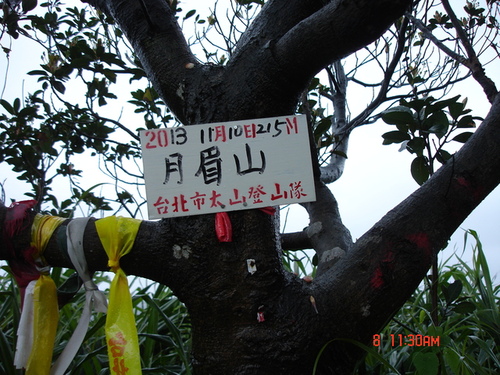 2013 11月10日215M
月眉山
台北市太山登山隊
台北
8 11:30AM